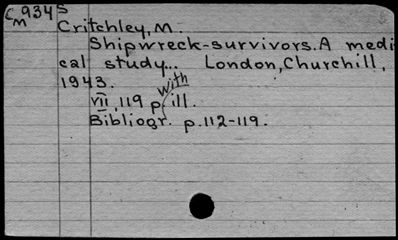 C934s
m
Critchley, M.
Shipwreck-survivors. A medi
cal study... London, Churchill,
1943.
with
VII, 119 p. ill.
Bibliogr. p.112-119.